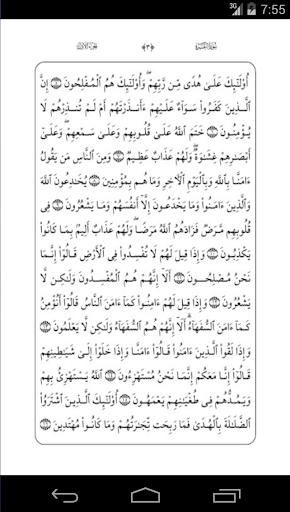 3G 7:55
سورة البقرة ﴿٣﴾ الجزء الأول
أُوْلَـٰٓئِكَ عَلَىٰ هُدًى مِّن رَّبِّهِمْ ۖ وَأُوْلَـٰٓئِكَ هُمُ ٱلْمُفْلِحُونَ ۝ إِنَّ
ٱلَّذِينَ كَفَرُواْ سَوَآءٌ عَلَيْهِمْ ءَأَنذَرْتَهُمْ أَمْ لَمْ تُنذِرْهُمْ لَا
يُؤْمِنُونَ ۝ خَتَمَ ٱللَّهُ عَلَىٰ قُلُوبِهِمْ وَعَلَىٰ سَمْعِهِمْ ۖ وَعَلَىٰٓ
أَبْصَـٰرِهِمْ غِشَـٰوَةٌ ۖ وَلَهُمْ عَذَابٌ عَظِيمٌ ۝ وَمِنَ ٱلنَّاسِ مَن يَقُولُ
ءَامَنَّا بِٱللَّهِ وَبِٱلْيَوْمِ ٱلْأَخِرِ وَمَا هُم بِمُؤْمِنِينَ ۝ يُخَـٰدِعُونَ ٱللَّهَ
وَٱلَّذِينَ ءَامَنُواْ وَمَا يَخْدَعُونَ إِلَّآ أَنفُسَهُمْ وَمَا يَشْعُرُونَ ۝ فِى
قُلُوبِهِم مَّرَضٌ فَزَادَهُمُ ٱللَّهُ مَرَضًا ۖ وَلَهُمْ عَذَابٌ أَلِيمٌۢ بِمَا كَانُواْ
يَكْذِبُونَ ۝ وَإِذَا قِيلَ لَهُمْ لَا تُفْسِدُواْ فِى ٱلْأَرْضِ قَالُوٓاْ إِنَّمَا
نَحْنُ مُصْلِحُونَ ۝ أَلَآ إِنَّهُمْ هُمُ ٱلْمُفْسِدُونَ وَلَـٰكِن لَّا
يَشْعُرُونَ ۝ وَإِذَا قِيلَ لَهُمْ ءَامِنُواْ كَمَآ ءَامَنَ ٱلنَّاسُ قَالُوٓاْ أَنُؤْمِنُ
كَمَآ ءَامَنَ ٱلسُّفَهَآءُ ۗ أَلَآ إِنَّهُمْ هُمُ ٱلسُّفَهَآءُ وَلَـٰكِن لَّا يَعْلَمُونَ ۝
وَإِذَا لَقُواْ ٱلَّذِينَ ءَامَنُواْ قَالُوٓاْ ءَامَنَّا وَإِذَا خَلَوْاْ إِلَىٰ شَيَـٰطِينِهِمْ
قَالُوٓاْ إِنَّا مَعَكُمْ إِنَّمَا نَحْنُ مُسْتَهْزِءُونَ ۝ ٱللَّهُ يَسْتَهْزِئُ بِهِمْ
وَيَمُدُّهُمْ فِى طُغْيَـٰنِهِمْ يَعْمَهُونَ ۝ أُوْلَـٰٓئِكَ ٱلَّذِينَ ٱشْتَرَوُاْ
ٱلضَّلَـٰلَةَ بِٱلْهُدَىٰ فَمَا رَبِحَت تِّجَـٰرَتُهُمْ وَمَا كَانُواْ مُهْتَدِينَ ۝